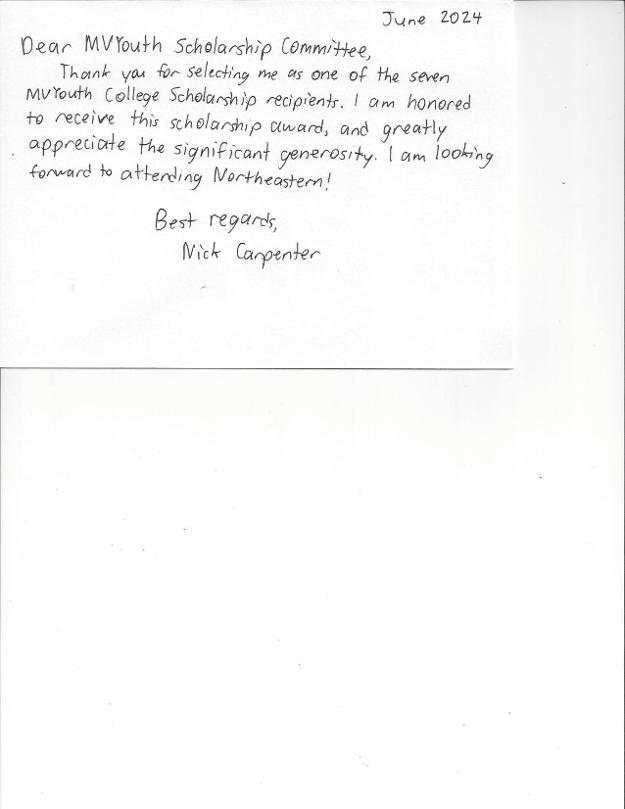 June 2024
Dear MVYouth Scholarship Committee,
Thank you for selecting me as one of the seven
MVYouth College Scholarship recipients. I am honored
to receive this scholarship award, and greatly
appreciate the significant generosity. I am looking
forward to attending Northeastern!
Best regards,
Nick Carpenter